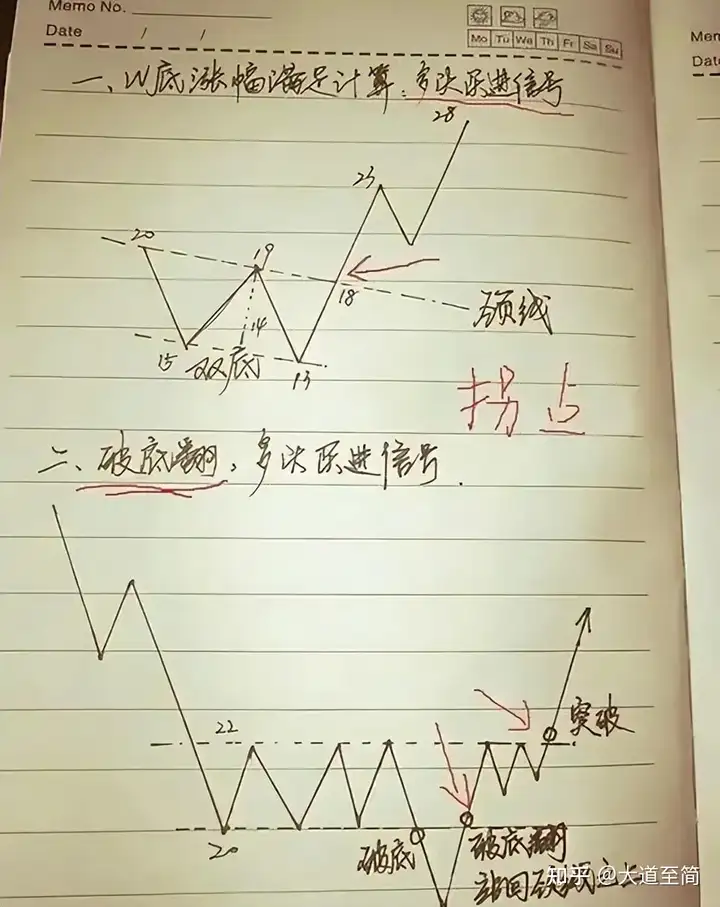 Memo No.
Date / /
Mo Tu We Th Fr Sa Su
Mem
Date
一、W底涨幅满足计算：多头跃进信号
28
23
20
19
18
颈线
14
15
双底
13
拐点
二、破底翻：多头跃进信号.
22
突破
20
破底
破底翻
站回颈线之上
知乎 @大道至简